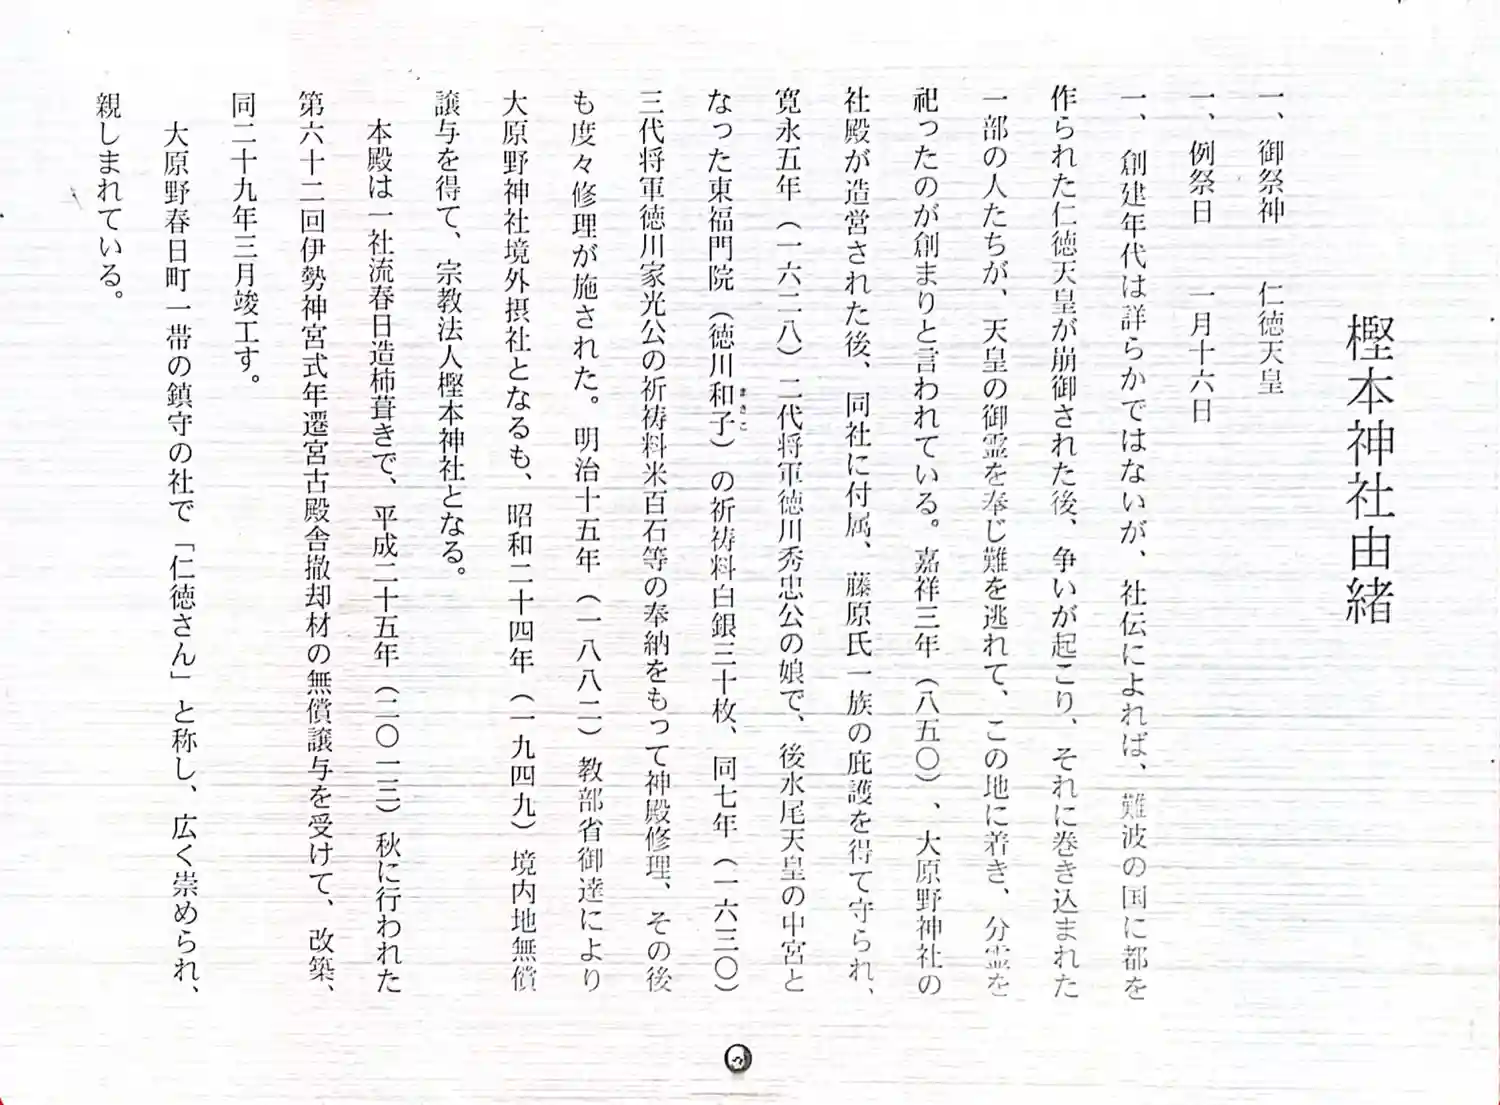 樫本神社由緒
一、御祭神　仁徳天皇
一、例祭日　一月十六日
一、創建年代は詳らかではないが、社伝によれば、難波の国に都を
作られた仁徳天皇が崩御された後、争いが起こり、それに巻き込まれた
一部の人たちが、天皇の御霊を奉じ難を逃れて、この地に着き、分霊を
祀ったのが創まりと言われている。嘉祥三年（八五〇）、大原野神社の
社殿が造営された後、同社に付属、藤原氏一族の庇護を得て守られ、
寛永五年（一六二八）二代将軍徳川秀忠公の娘で、後水尾天皇の中宮と
なった東福門院（徳川和子）の祈祷料白銀三十枚、同七年（一六三〇）
まさこ
三代将軍徳川家光公の祈祷料米百石等の奉納をもって神殿修理、その後
も度々修理が施された。明治十五年（一八八二）教部省御達により
大原野神社境外摂社となるも、昭和二十四年（一九四九）境内地無償
譲与を得て、宗教法人樫本神社となる。
本殿は一社流春日造柿葺きで、平成二十五年（二〇一三）秋に行われた
第六十二回伊勢神宮式年遷宮古殿舎撤却材の無償譲与を受けて、改築、
同二十九年三月竣工す。
大原野春日町一帯の鎮守の社で「仁徳さん」と称し、広く崇められ、
親しまれている。